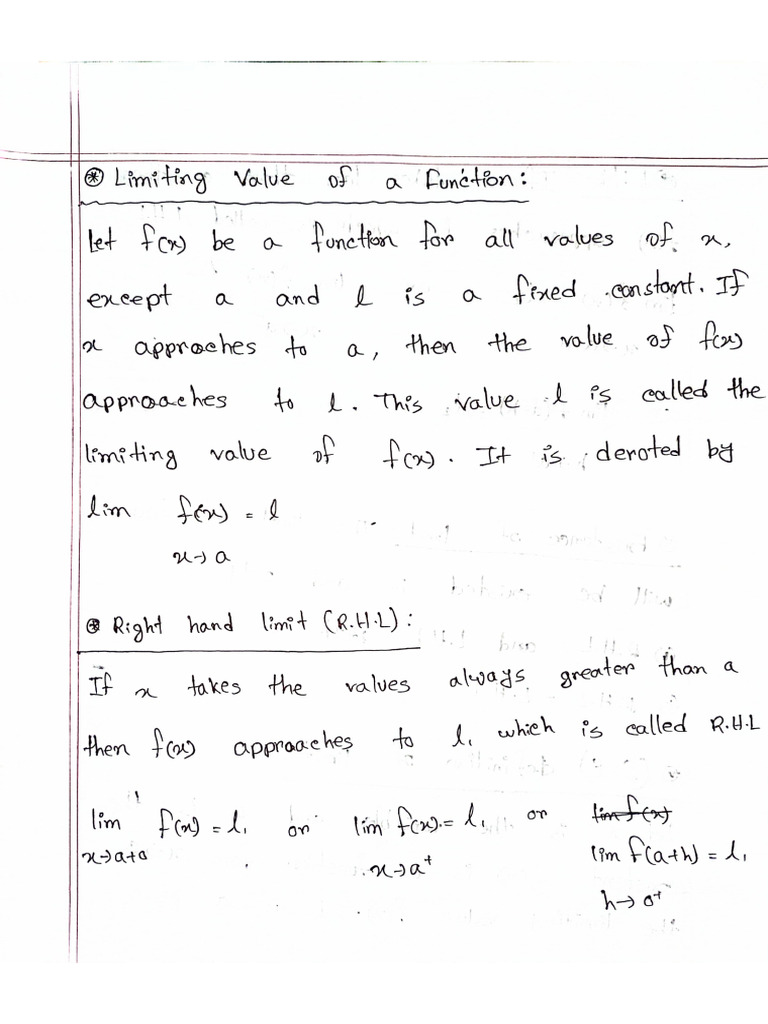 ⊛ Limiting Value of a Function:
Let f(x) be a function for all values of x,
except a and l is a fixed constant. If
x approches to a, then the value of f(x)
approaches to l. This value l is called the
limiting value of f(x). It is denoted by
lim f(x) = l
x→a
⊛ Right hand limit (R.H.L):
If x takes the values always greater than a
then f(x) approaches to l₁ which is called R.H.L
lim f(x) = l₁ or lim f(x) = l₁ or ~~lim f(x)~~
x→a+0 x→a⁺ lim f(a+h) = l₁
h→0⁺